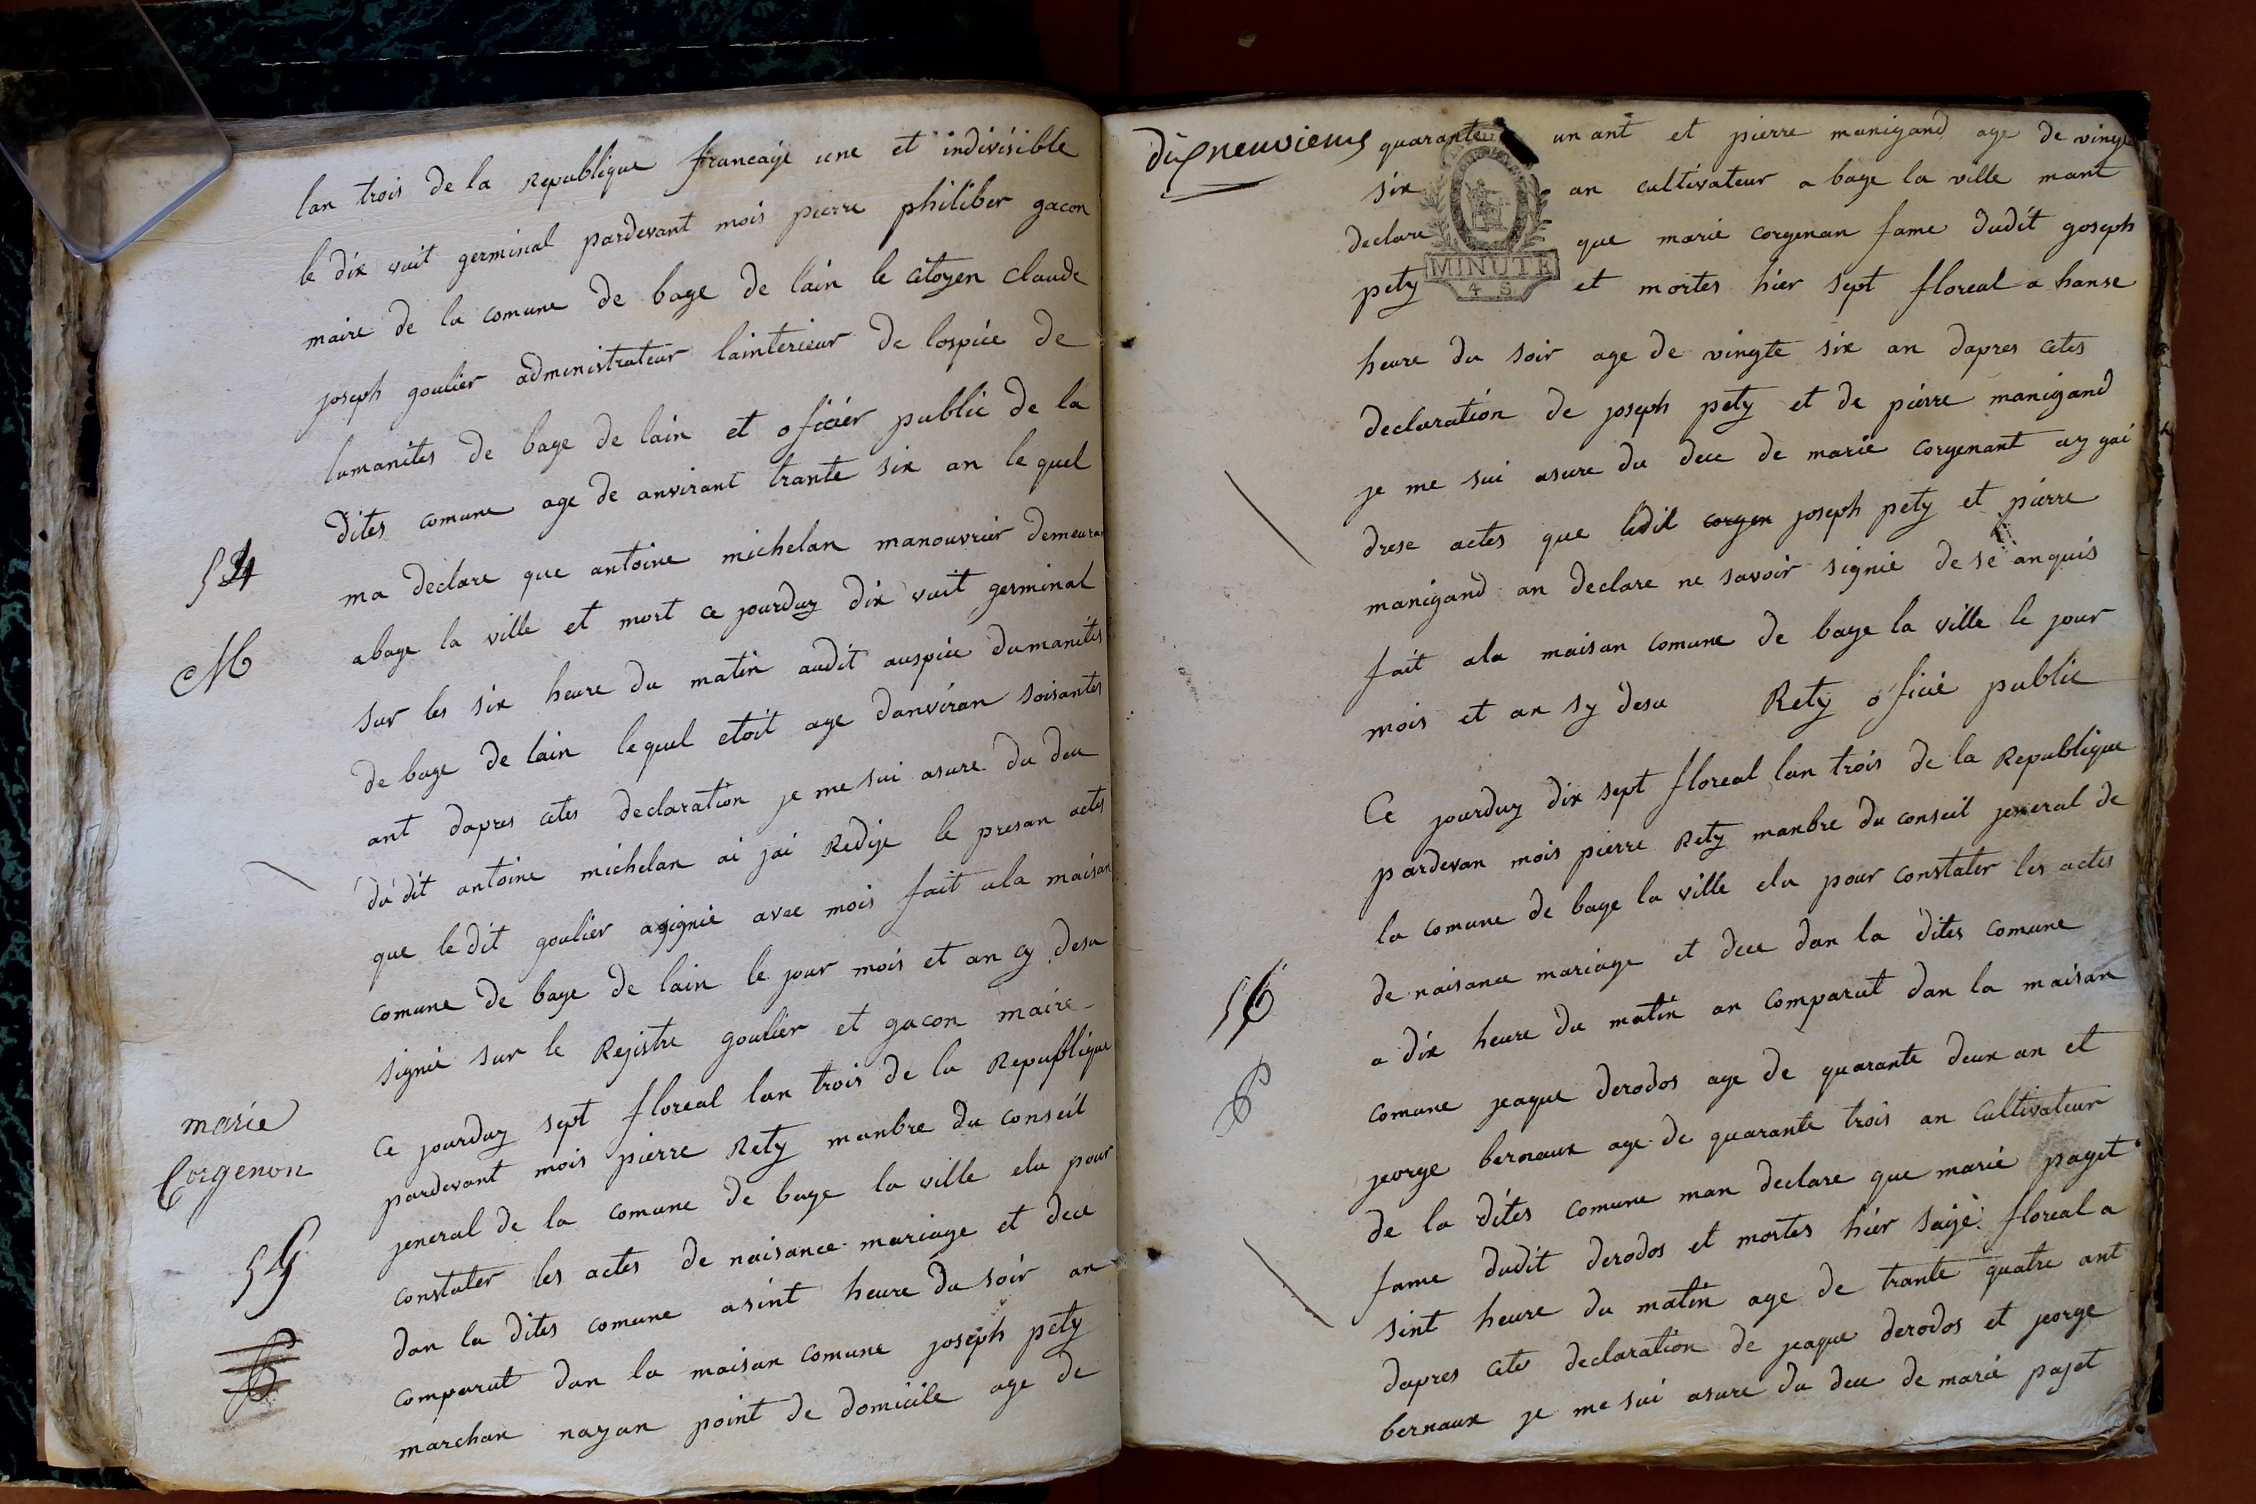 lan trois de la Republique francaije une et indivisible
le dix vuit germinal pardevant mois pierre philiber gacon
maire de la comune de bage de lain le citoyen claude
joseph goulier administrateur lainterieur de lospice de
lumanites de bage de lain et oficier public de la
dites comune age de anvirant trante six an le quel
54
ma declare que antoine michelan manouvrier demeuran
abage la ville et mort ce jourduy dix vuit germinal
M
sur les six heure du matin audit auspice dumanites
de bage de lain lequel etoit age danviran soisantes
ant dapres cetes declaration je me sui asure du dece
du dit antoine michelan ai jai Redije le presan actes
que le dit goulier a signie avec mois fait ala maisan
comune de bage de lain le jour mois et an cy desu
signie sur le Rejistre goulier et gacon maire
marie
Corgenon
Ce jourduy sept floreal lan trois de la Republique
pardevant mois pierre Rety manbre du conseil
jeneral de la comune de bage la ville elu pour
55
constater les actes de naisance mariage et dece
dan la dites comune a sint heure du soir an
comparut dan la maisan comune joseph pety
marchan nayan point de domicile age de
dixneuvieme
quarante un ant et pierre manigand age de vingte
six an cultivateur a bage la ville mant
declare que marie corgenan fame dudit goseph
pety et mortes hier sept floreal a hanse
MINUTE
4 S
heure du soir age de vingte six an dapres cetes
declaration de joseph pety et de pierre manigand
je me sui asure du dece de marie corgenant ay gai
drese actes que ledit corgen joseph pety et pierre
manigand an declare ne savoir signie de se anquis
fait ala maisan comune de bage la ville le jour
mois et an sy desu Rety oficié public
Ce jourduy dix sept floreal lan trois de la Republique
pardevan mois pierre Rety manbre du conseil jeneral de
la comune de bage la ville elu pour constater les actes
de naisance mariage et dece dan la dites comune
56
a dix heure du matin an comparut dan la maisan
comune jeaque derodos age de quarante deux an et
jeorge bernaux age de quarante trois an cultivateur
de la dites comune man declare que marie paget
fame dudit derodos et mortes hier saije floreal a
sint heure du matin age de trante quatre ant
dapres cetes declaration de jeaque derodos et jeorge
bernaux je me sui asure du dece de marie pajet